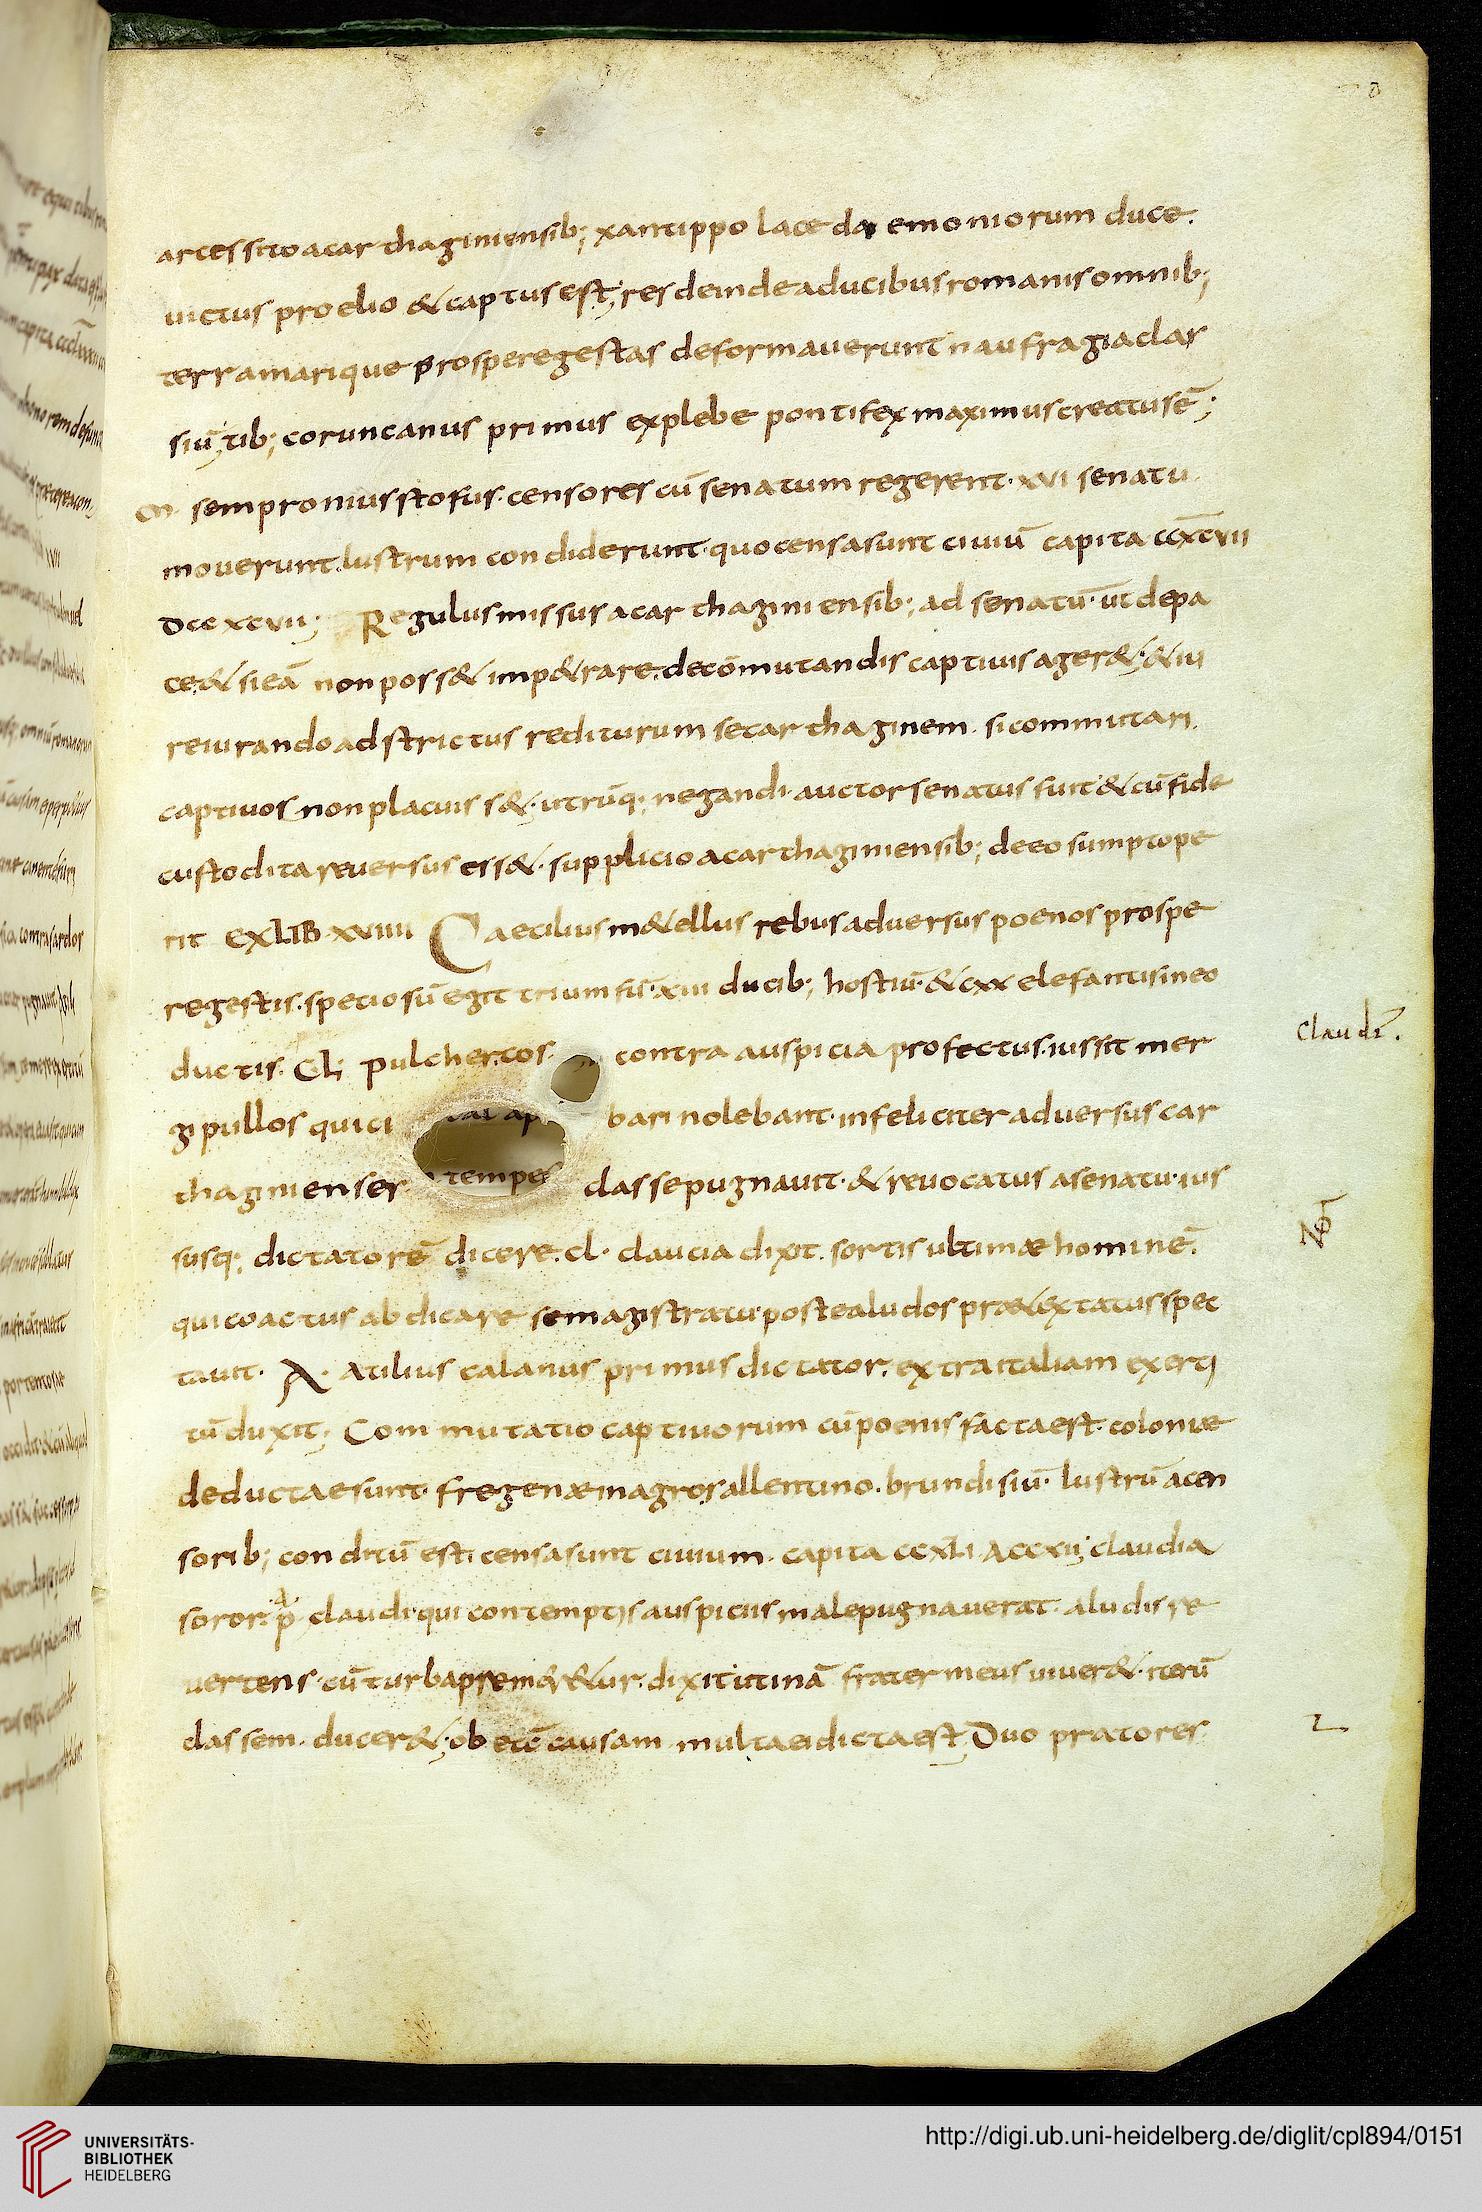 arcessito a carthaginiensib; xantippo lacedaemoniorum duce.
uictus proelio & captus est; res deinde a ducibus romanis omnib;
terra marique prospere gestas deformauerunt naufragia clas
siū; tib; coruncanus primus ex plebe pontifex maximus creatus ē;
sempronius stofus. censores cū senatum regerent. xvi senatu
mouerunt. lustrum condiderunt. quo censa sunt ciuiū capita ccxcvii
dccxcvii; Regulus missus a carthaginiensib; ad senatū. ut de pa
ce. & si eā non poss& imp&rare. de cōmutandis captiuis ager&. & iu
reiurando adstrictus rediturum se carthaginem. si commutari.
captiuos non placuiss&. utrūq; negandi auctor senatus fuit & cū fide
custodita reuersus ess&. supplicio a carthaginiensib; de eo sumpto pe
riit EX LIB XVIIII Caecilius m&ellus rebus aduersus poenos prospe
re gestis. speciosū egit triumfū. xiii ducib; hostiū. & cxx elefantis in eo
ductis. Cl; pulcher. cos. contra auspicia profectus. iussit mer
gi pullos qui ci bari nolebant. infeliciter aduersus car
Claudi.
thaginienses classe pugnauit. & reuocatus a senatu. ius
tempes
susq; dictatorē dicere. cl. claucia dixit. sortis ultimæ hominē.
qui coactus abdicare se magistratu. postea ludos præ&extatus spec
tauit. A. atilius calanus primus dictator. extra italiam exerci
tū duxit; Commutatio captiuorum cū poenis facta est. coloniæ
deductae sunt. fregenæ in agro sallentino. brundisiū. lustrū a cen
sorib; conditū est. censa sunt ciuium. capita ccxli. ccxii; claudia
soror. p claudi. qui contemptis auspiciis male pugnauerat a ludis re
uertens. cū turba prem&ur. dixit utinā frater meus uiuer&. iterū
classem. ducer&; ob causam multa ei dicta est. Duo pratores
UNIVERSITÄTS-
BIBLIOTHEK
HEIDELBERG
http://digi.ub.uni-heidelberg.de/diglit/cpl894/0151